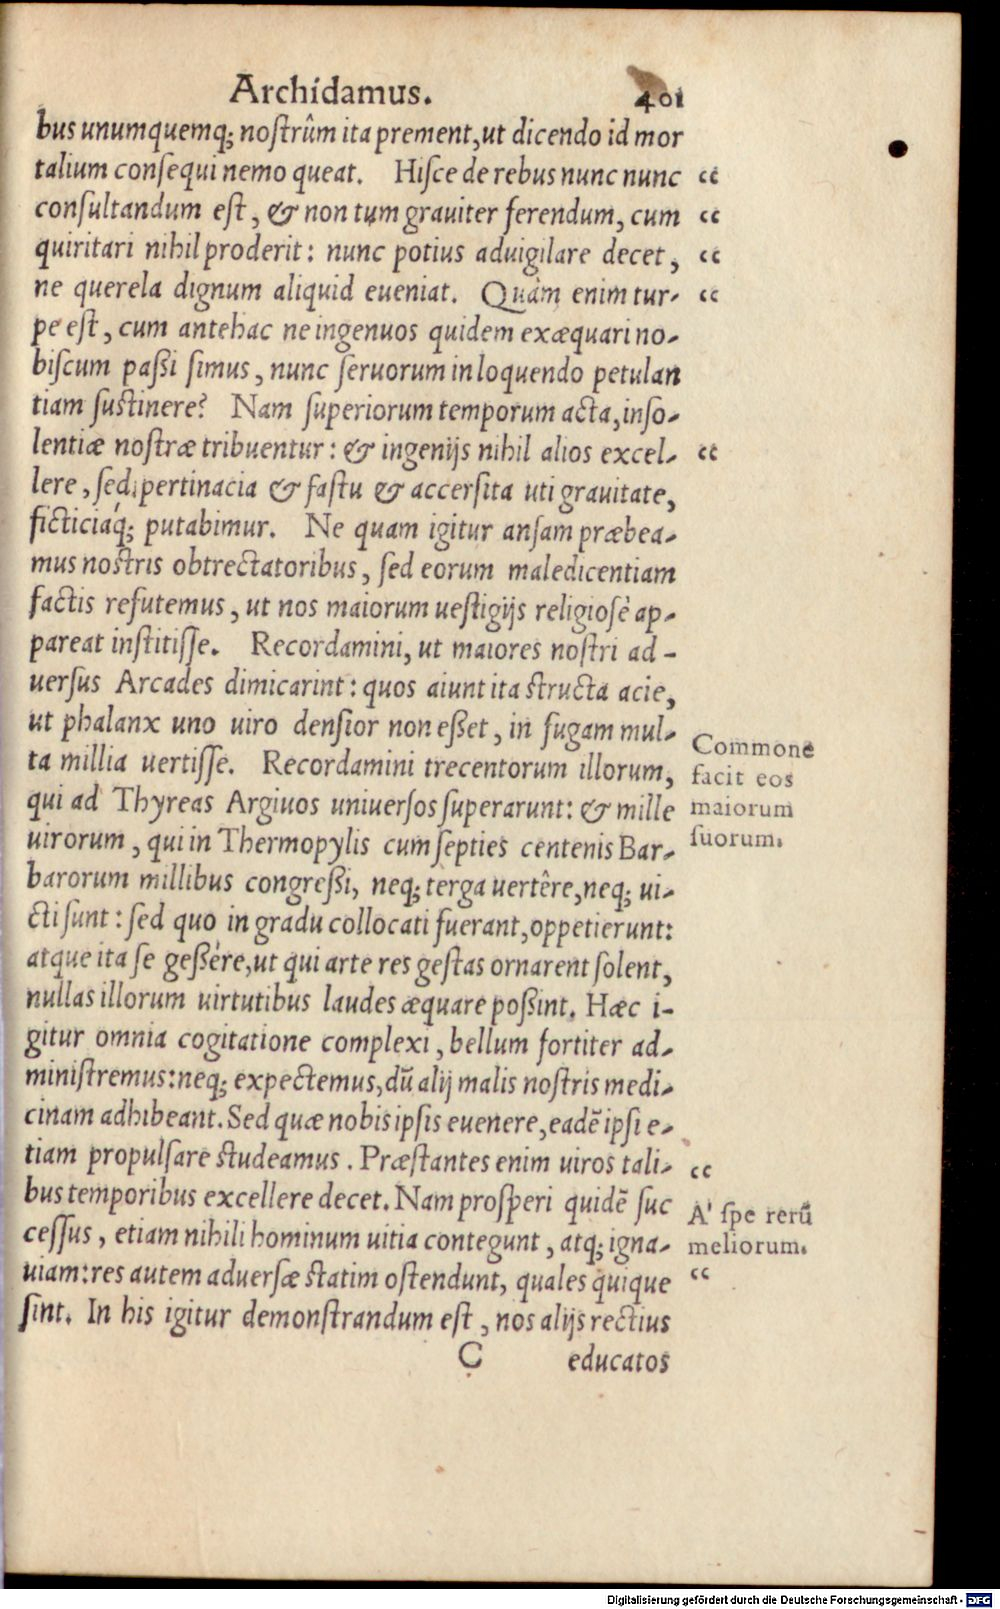 Archidamus. 401
bus unumquemq; noſtrûm ita prement, ut dicendo id mor
talium conſequi nemo queat. Hiſce de rebus nunc nunc “
conſultandum eſt, & non tum grauiter ferendum, cum “
quiritari nihil proderit: nunc potius aduigilare decet, “
ne querela dignum aliquid eueniat. Quàm enim tur- “
pe eſt, cum antehac ne ingenuos quidem exæquari no-
biſcum paßi ſimus, nunc ſeruorum in loquendo petulan
tiam ſuſtinere? Nam ſuperiorum temporum acta, inſo-
lentiæ noſtræ tribuentur: & ingenijs nihil alios excel- “
lere, ſed pertinacia & faſtu & accerſita uti grauitate,
ficticiáq; putabimur. Ne quam igitur anſam præbea-
mus noſtris obtrectatoribus, ſed eorum maledicentiam
factis refutemus, ut nos maiorum ueſtigijs religioſè ap-
pareat inſtitiſſe. Recordamini, ut maiores noſtri ad-
uerſus Arcades dimicarint: quos aiunt ita ſtructa acie,
ut phalanx uno uiro denſior non eßet, in fugam mul-
ta millia uertiſſe. Recordamini trecentorum illorum,
qui ad Thyreas Argiuos uniuerſos ſuperarunt: & mille
uirorum, qui in Thermopylis cum ſepties centenis Bar-
barorum millibus congreßi, neq; terga uertêre, neq; ui-
cti ſunt: ſed quo in gradu collocati fuerant, oppetierunt:
atque ita ſe geßêre, ut qui arte res geſtas ornarent ſolent,
nullas illorum uirtutibus laudes æquare poßint. Hæc i-
gitur omnia cogitatione complexi, bellum fortiter ad-
miniſtremus: neq; expectemus, dũ alij malis noſtris medi-
cinam adhibeant. Sed quæ nobis ipſis euenere, eadẽ ipſi e-
tiam propulſare ſtudeamus. Præſtantes enim uiros tali- “
bus temporibus excellere decet. Nam proſperi quidẽ ſuc
ceſſus, etiam nihili hominum uitia contegunt, atq; igna-
uiam: res autem aduerſæ ſtatim oſtendunt, quales quique “
ſint. In his igitur demonſtrandum eſt, nos alijs rectius
C educatos
Commone
facit eos
maiorum
ſuorum.
A' ſpe rerũ
meliorum.
Digitalisierung gefördert durch die Deutsche Forschungsgemeinschaft - DFG